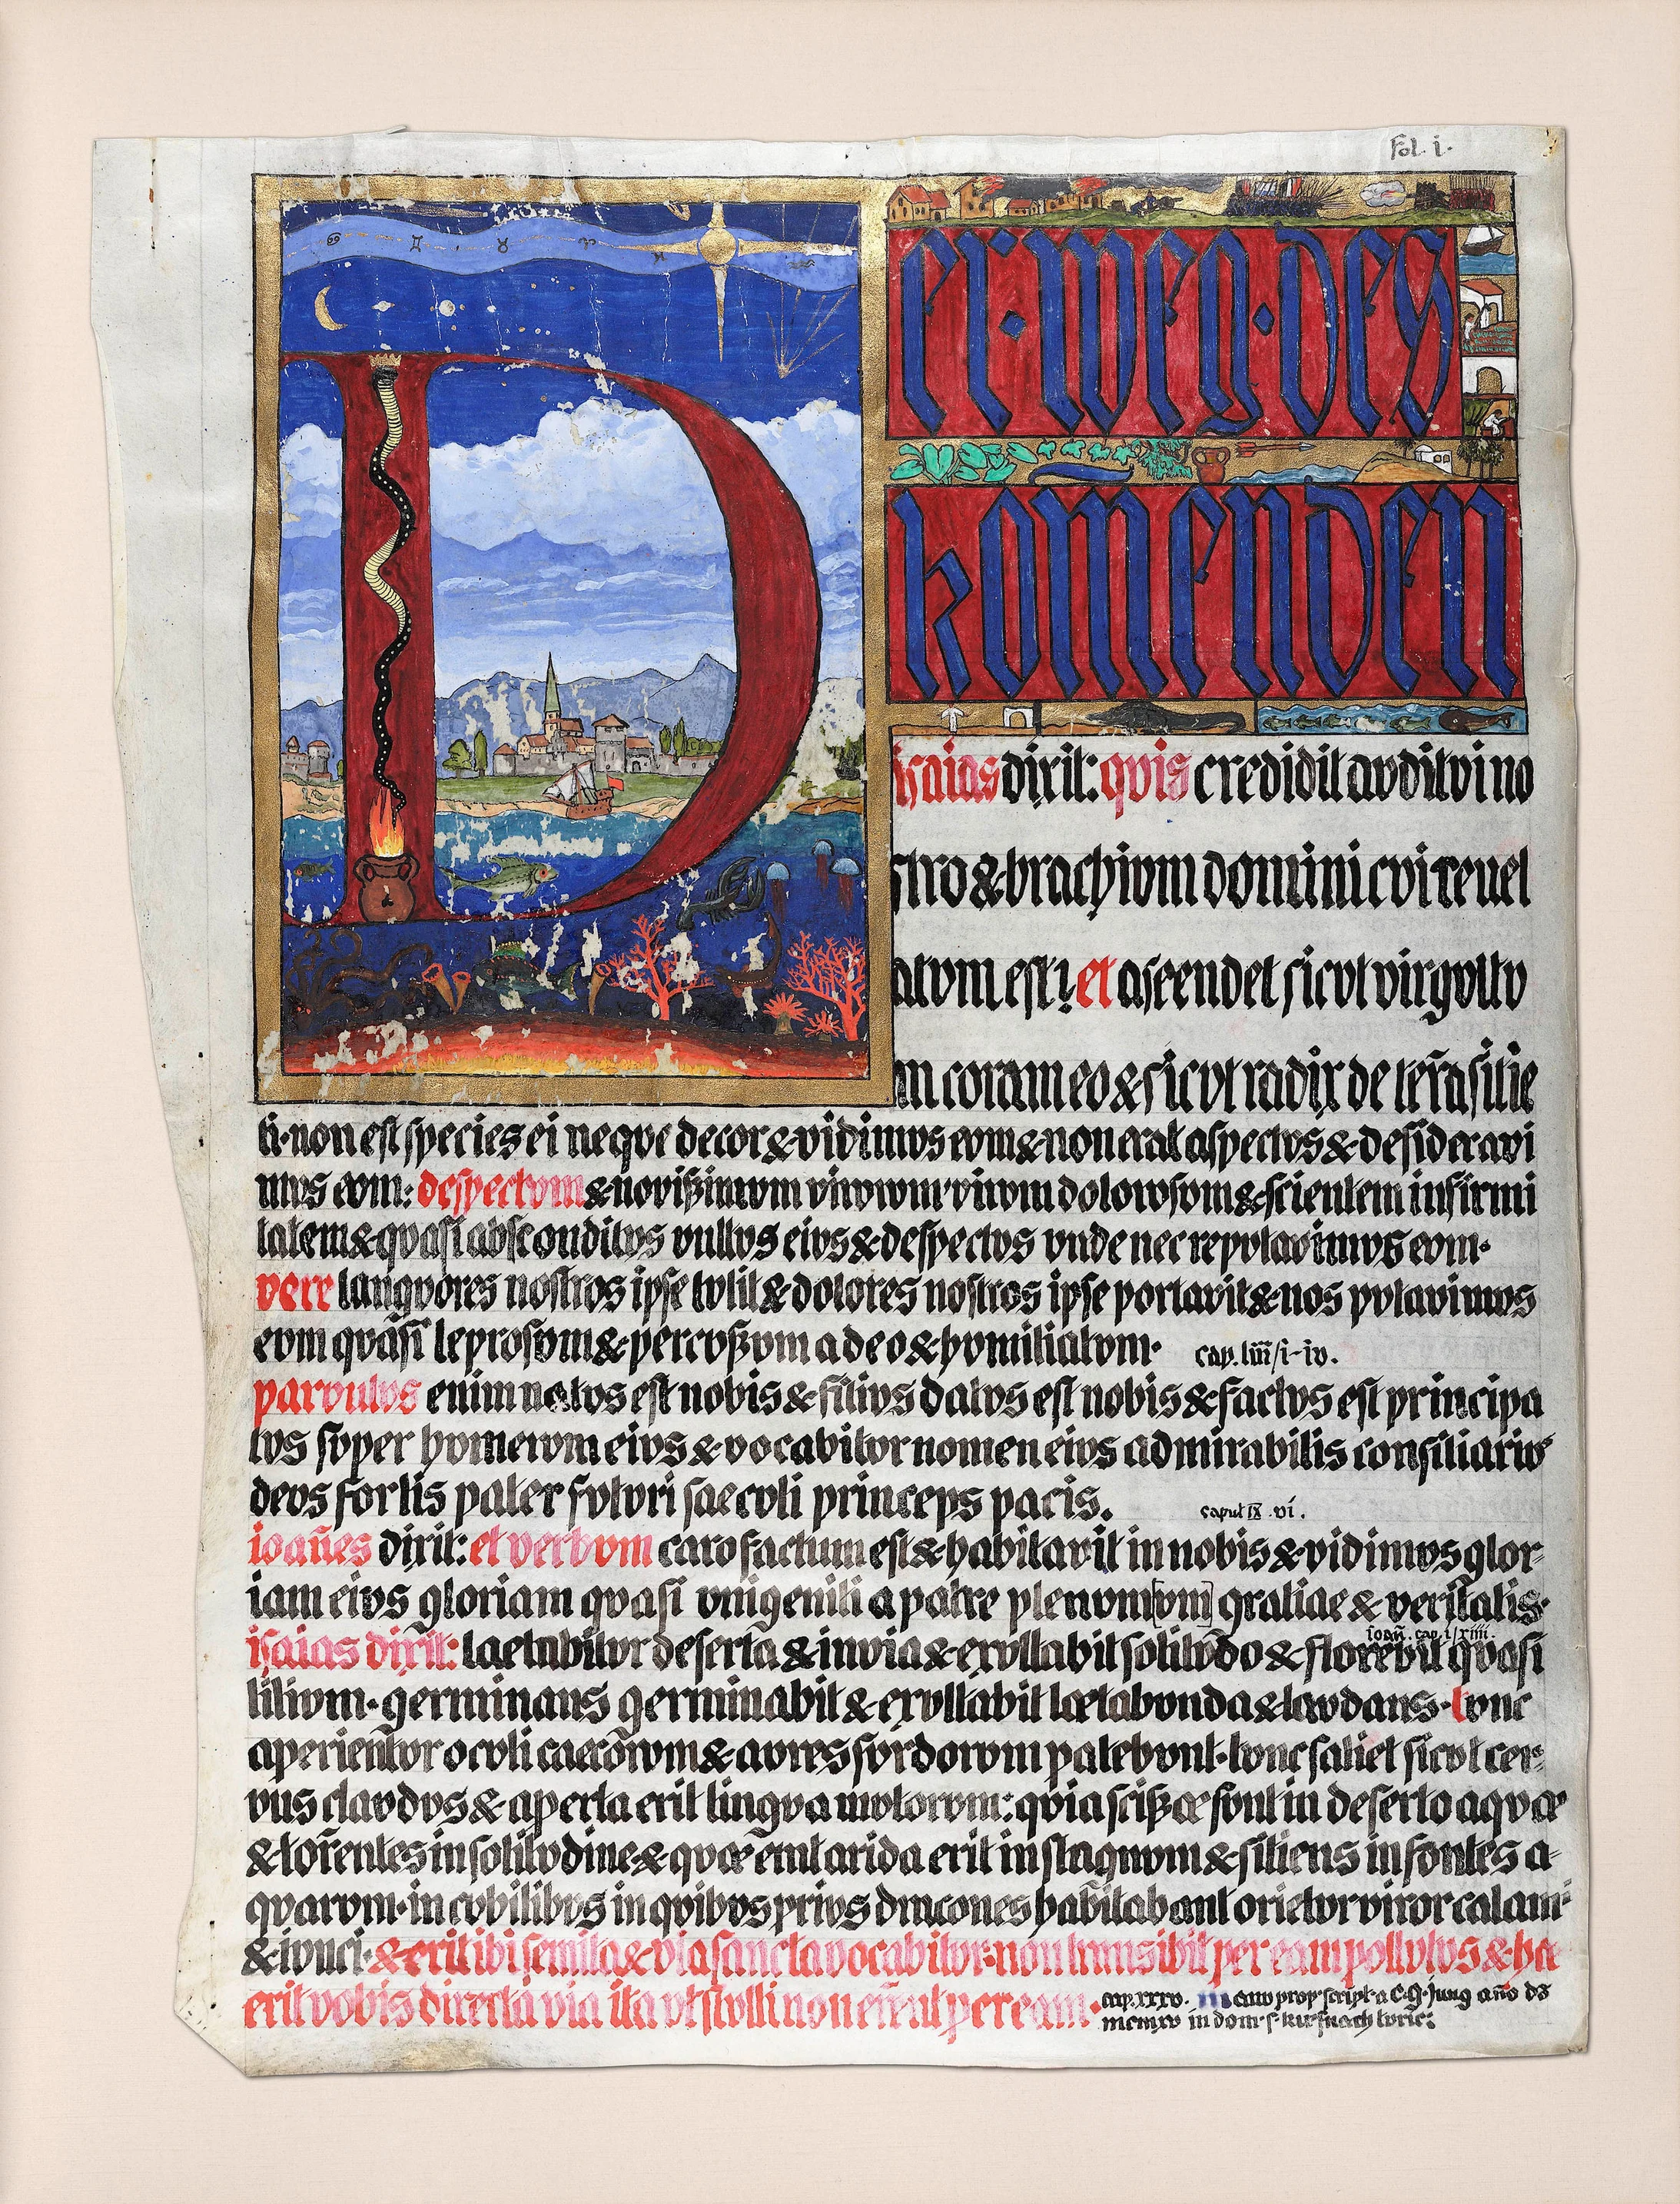 fol. i.
Der · weg · des
komenden
isaias dixit: quis credidit auditui no
stro & brachium domini cui reuel
atum est? et ascendet sicut virgultu
m coram eo & sicut radix de terra sitie
ti · non est species ei neque decor & vidimus eum & non erat aspectus & desideravi
mus eum: despectum & novissimum virorum virum dolorosum & scientem infirmi
tatem & quasi absconditus vultus eius & despectus unde nec reputavimus eum ·
vere languores nostros ipse tulit & dolores nostros ipse portavit & nos putavimus
eum quasi leprosum & percussum a deo & humiliatum · cap. liii/i-iv.
parvulus enim natus est nobis & filius datus est nobis & factus est principa
tus super humerum eius & vocabitur nomen eius admirabilis consiliarius
deus fortis pater futuri saeculi princeps pacis. caput ix . vi.
ioañes dixit: et verbum caro factum est & habitavit in nobis & vidimus glor-
iam eius gloriam quasi unigeniti a patre plenum[um] gratiae & veritatis ·
ioañ. cap. i/xiiii.
isaias dixit: laetabitur deserta & invia & exultabit solitudo & florebit quasi
lilium · germinans germinabit & exultabit lætabunda & laudans · tunc
aperientur oculi caecorum & aures surdorum patebunt · tunc saliet sicut cer-
vus claudus & aperta erit lingua mutorum: quia scissæ sunt in deserto aquæ
& torrentes in solitudine & quæ erat arida erit in stagnum & sitiens in fontes a-
quarum · in cubilibus in quibus prius dracones habitabant orietur viror calami
& iunci · & erit ibi semita & via sancta vocabitur · non transibit per eam pollutus & hæc
erit vobis directa via ita ut stulti non errent per eam ·
cap. xxxv. manu propr. script. a C. G. Jung año dō
mcmxv in dom. s. kusnach turic: